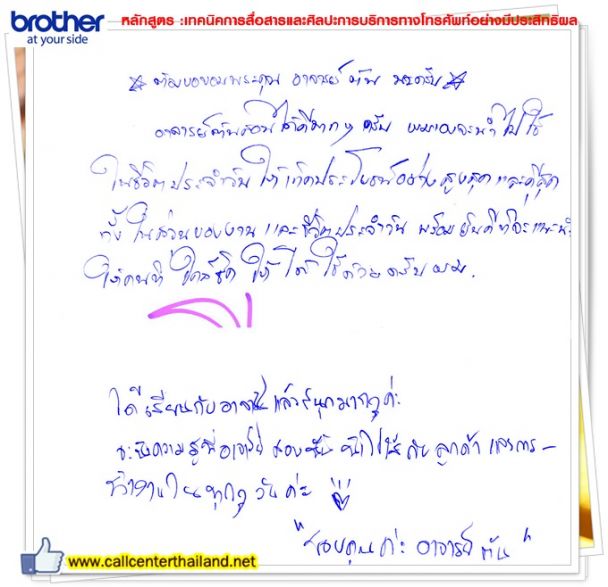 brother
at your side
หลักสูตร :เทคนิคการสื่อสารและศิลปะการบริการทางโทรศัพท์อย่างมีประสิทธิผล
ต้องขอขอบพระคุณ อาจารย์ ตั้น นะครับ
อาจารย์ตั้นสอนได้ดีมากๆ ครับ ผมเองจะนำไปใช้
ในชีวิตประจำวัน ให้เกิดประโยชน์อย่างสูงสุด และดีสุด
ทั้งในส่วนของงาน และชีวิตประจำวัน พร้อมยินดีที่จะแนะนำ
ให้คนที่ใกล้ชิด ให้ได้ใช้ด้วยครับผม.
ได้เรียนกับอาจารย์แล้วสนุกมากๆค่ะ
จะนำความรู้ที่อาจารย์สอน นำไปใช้กับลูกค้า และการ-
ทำงานในทุกๆวันค่ะ
"ขอบคุณค่ะ อาจารย์ ตั้น"
www.callcenterthailand.net